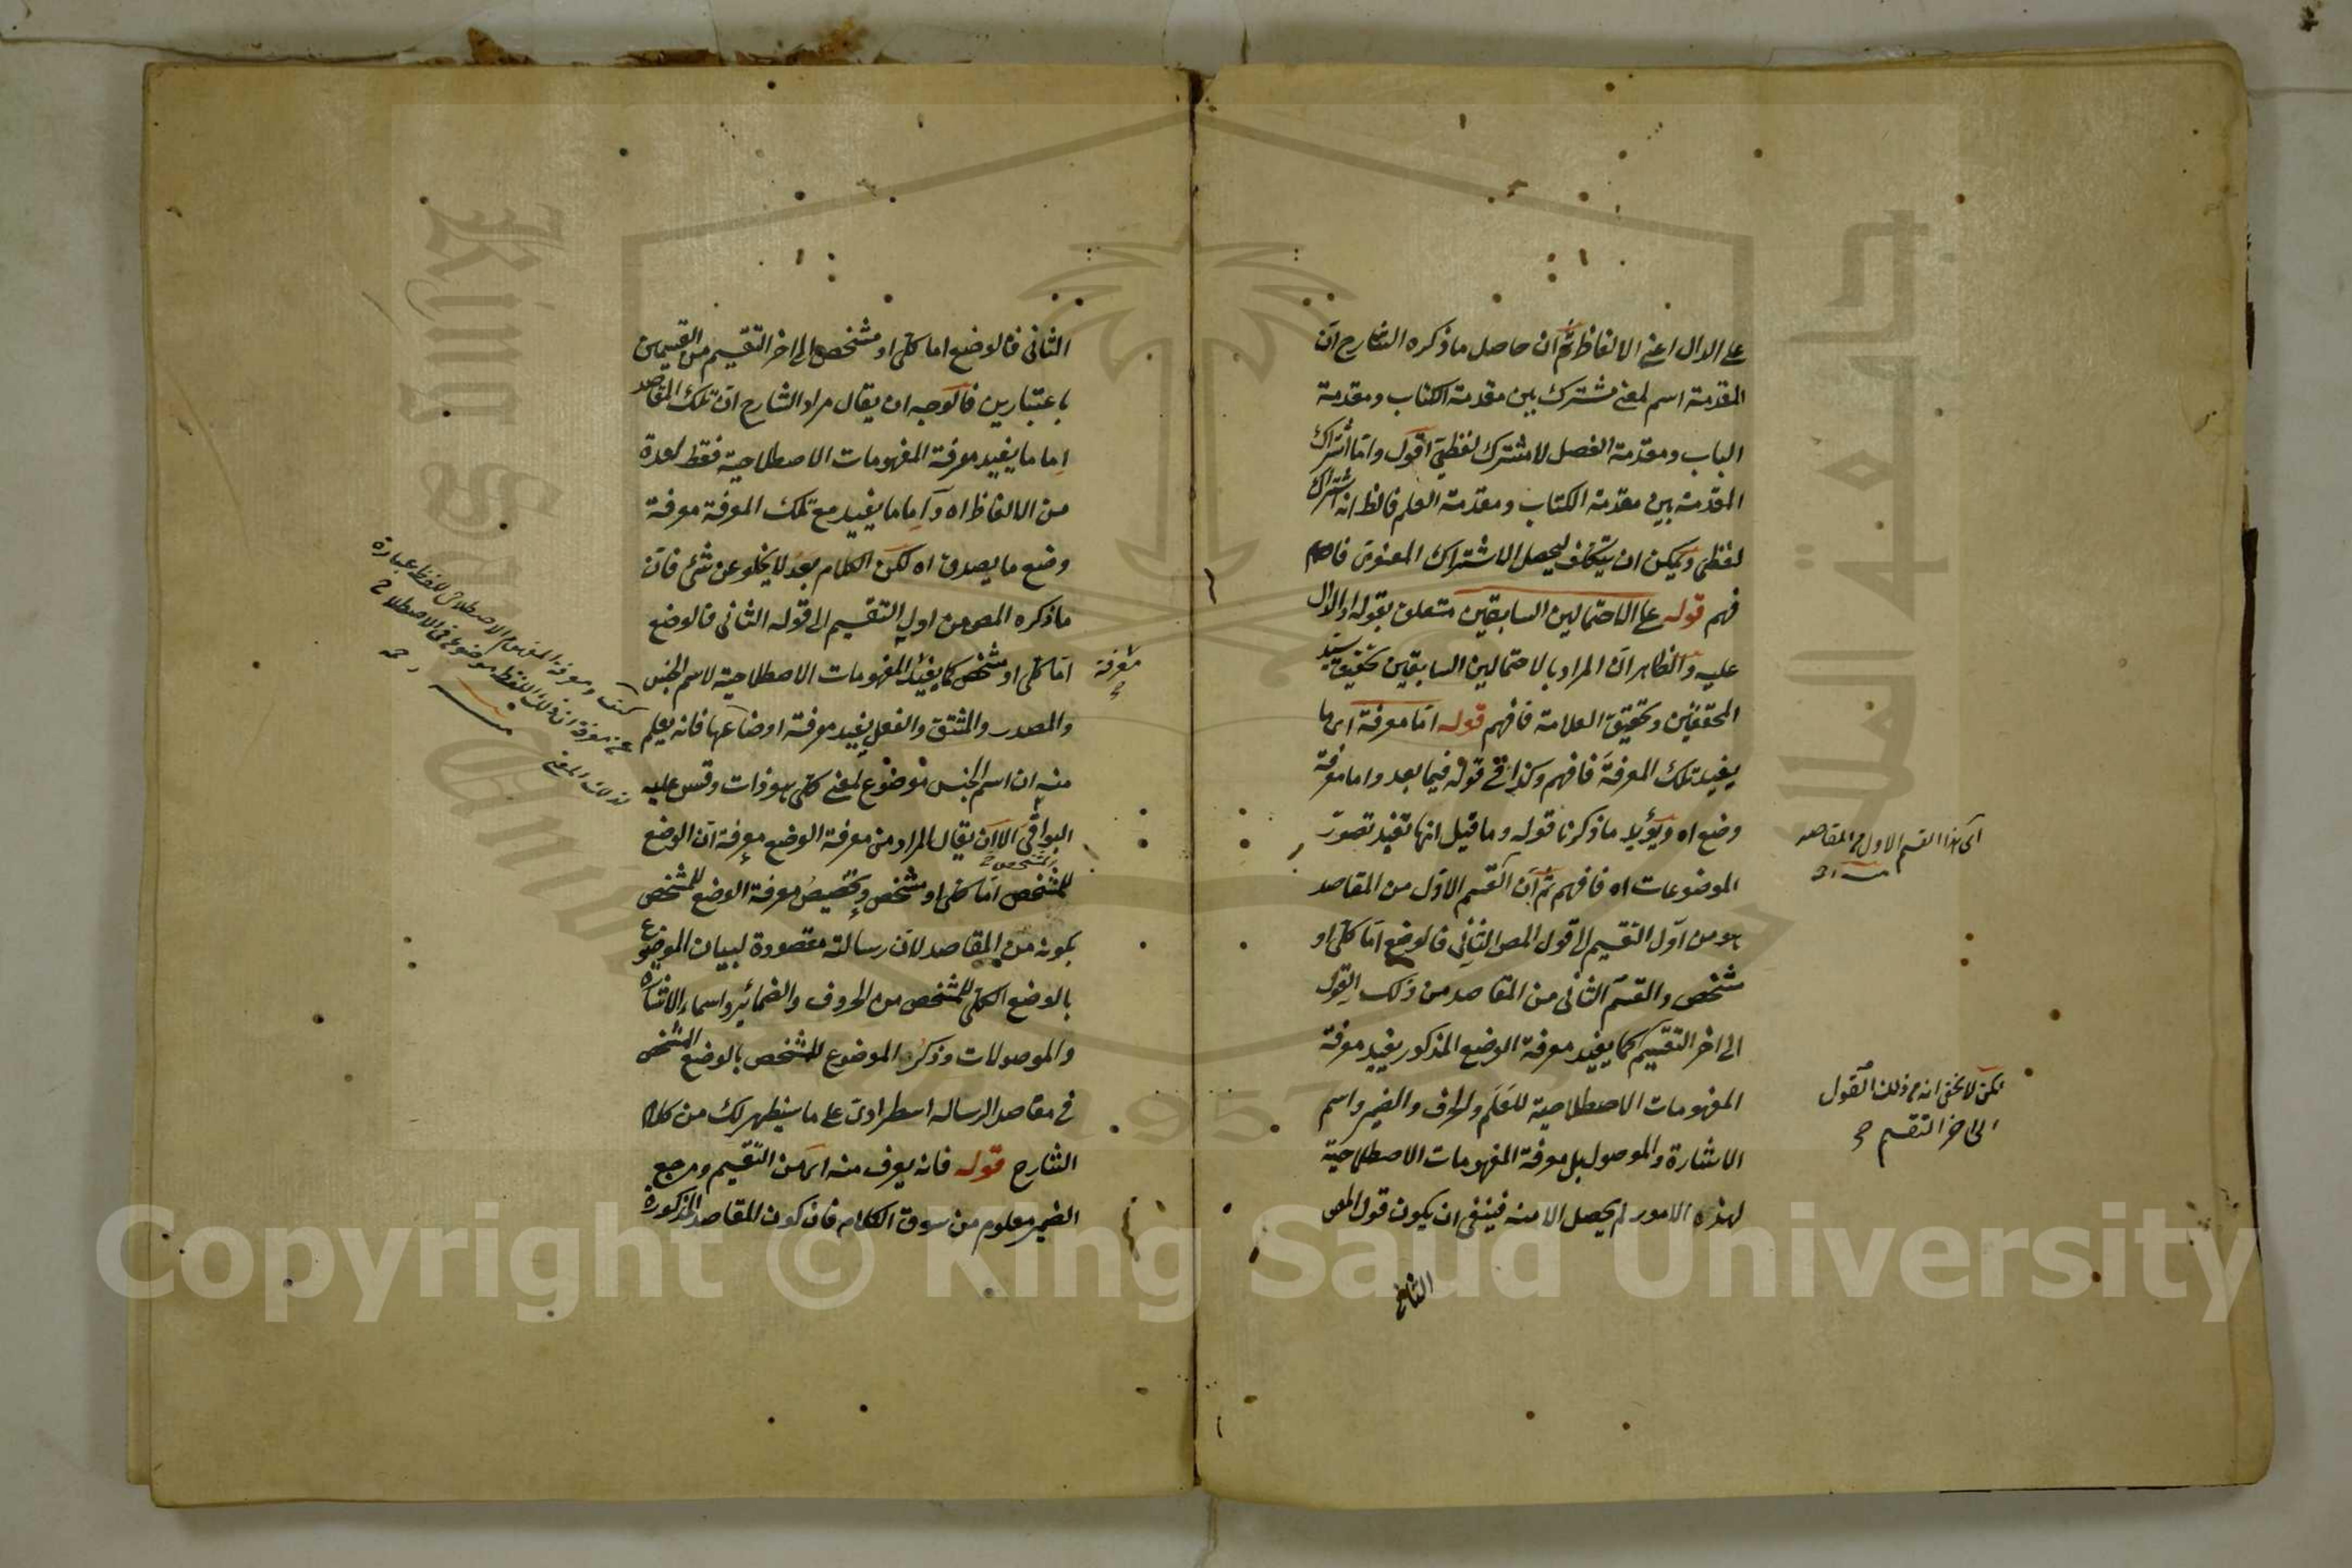 على الدال اعنى الالفاظ ثم ان حاصل ما ذكره الشارح ان
المقدمة اسم لمعنى مشترك بين مقدمة الكتاب ومقدمة
الباب ومقدمة الفصل لا مشترك لفظي اقول واما اشتراك
المقدمة بين مقدمة الكتاب ومقدمة العلم فالظ انه اشتراك
لفظي ويمكن ان يتكلف ليحصل الاشتراك المعنوى فافهم
فهم قوله على الاحتمالين السابقين متعلق بقوله او الدال
عليه والظاهر ان المراد بالاحتمالين السابقين تحقيق سيد
المحققين وتحقيق العلامة فافهم قوله اما معرفة اى ما
يفيد تلك المعرفة فافهم وكذا فى قوله فيما بعد واما معرفة
وضع اه ويؤيد ما ذكرنا قوله وما قيل انها تفيد تصور
الموضوعات اه فافهم ثم ان القسم الاول من المقاصد
هو من اول التقسيم الى قول المص الثانى فالوضع اما كلى او
مشخص والقسم الثانى من المقاصد من ذلك القول
الى اخر التقسيم كما يفيد معرفة الوضع المذكور يفيد معرفة
المفهومات الاصطلاحية للعلم والحرف والضمير واسم
الاشارة والموصول بل معرفة المفهومات الاصطلاحية
لهذه الامور لم يحصل الا منه فينبغى ان يكون قول المص
الثانى
اى هذا القسم الاول من المقاصد
لكن لا يخفى انه من ذلك القول
الى اخر التقسيم
الثانى فالوضع اما كلى او مشخص الى اخر التقسيم من القسمين
باعتبارين فالوجه ان يقال مراد الشارح ان تلك المقاصد
اما ما يفيد معرفة المفهومات الاصطلاحية فقط لعدة
من الالفاظ اه واما ما يفيد مع تلك المعرفة معرفة
وضع ما يصدق اه لكن الكلام بعد لا يخلو عن شئ فان
ما ذكره المص من اول التقسيم الى قوله الثانى فالوضع
اما كلى او مشخص كما يفيد المفهومات الاصطلاحية لاسم الجنس
والمصدر والمشتق والفعل يفيد معرفة اوضاعها فانه يعلم
منه ان اسم الجنس موضوع لمعنى كلى هو ذات وقس عليه
البواقى الا ان يقال المراد من معرفة الوضع معرفة ان الوضع
للمشخص اما كلى او مشخص وتخصيص معرفة الوضع للمشخص
بكونه من المقاصد لان رسالته مقصودة لبيان الموضوع
بالوضع الكلى للمشخص من الحروف والضمائر واسماء الاشارة
والموصولات وذكر الموضوع للمشخص بالوضع المشخص
فى مقاصد الرسالة اسطرادى على ما سيظهر لك من كلام
الشارح قوله فانه يعرف منه اى من التقسيم ومرجع
الضمير معلوم من سوق الكلام فان كون المقاصد المذكورة
معرفة
المشخص
ومعرفة المفهوم الاصطلاحى للفظ عبارة
عن معرفة ان ذلك اللفظ موضوع فى الاصطلاح
لذلك المعنى
Copyright © King Saud University
King Saud University
جامعة الملك
1957